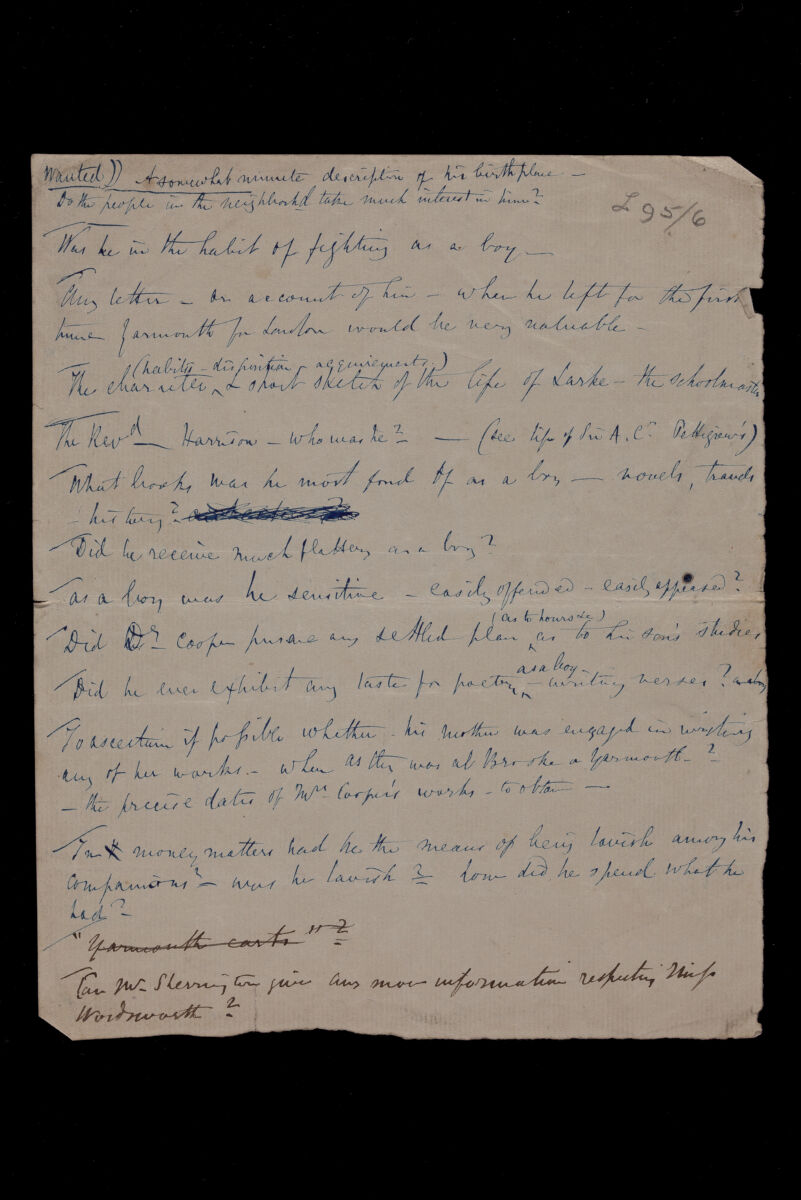 Wanted)) A somewhat minute description of his birthplace -
Do the people in the neighborhd take much interest in him?
L 95/6
Was he in the habit of fighting as a boy -
Any letter - or account of him - when he left for the first
time Yarmouth for London would be very valuable -
(habits - disposition, acquirements,)
The character, & short sketch of the life of Larke - the schoolmaster
The Revd - Harrison - who was he? - (see life of Sir A. C. Pettigrew's)
What books was he most fond of as a boy - novels, travels
history?
Did he receive much flattery as a boy?
As a boy was he sensitive - easily offended - easily appeased?
(as to hours &c)
Did Dr Cooper pursue any settled plan as to his son's studies
as a boy -
Did he ever exhibit any taste for poetry - writing verses? as a boy
To ascertain if possible whether his mother was engaged in writing
any of her works - when as they was at Brooke or Yarmouth - ?
- the precise dates of Mrs Cooper's works - to obtain -
In money matters had he the means of being lavish among his
companions? - was he lavish? how did he spend what he
had? -
"Yarmouth carts"?
Can Mr Sherrington give any more information respecting Miss
Wordsworth?